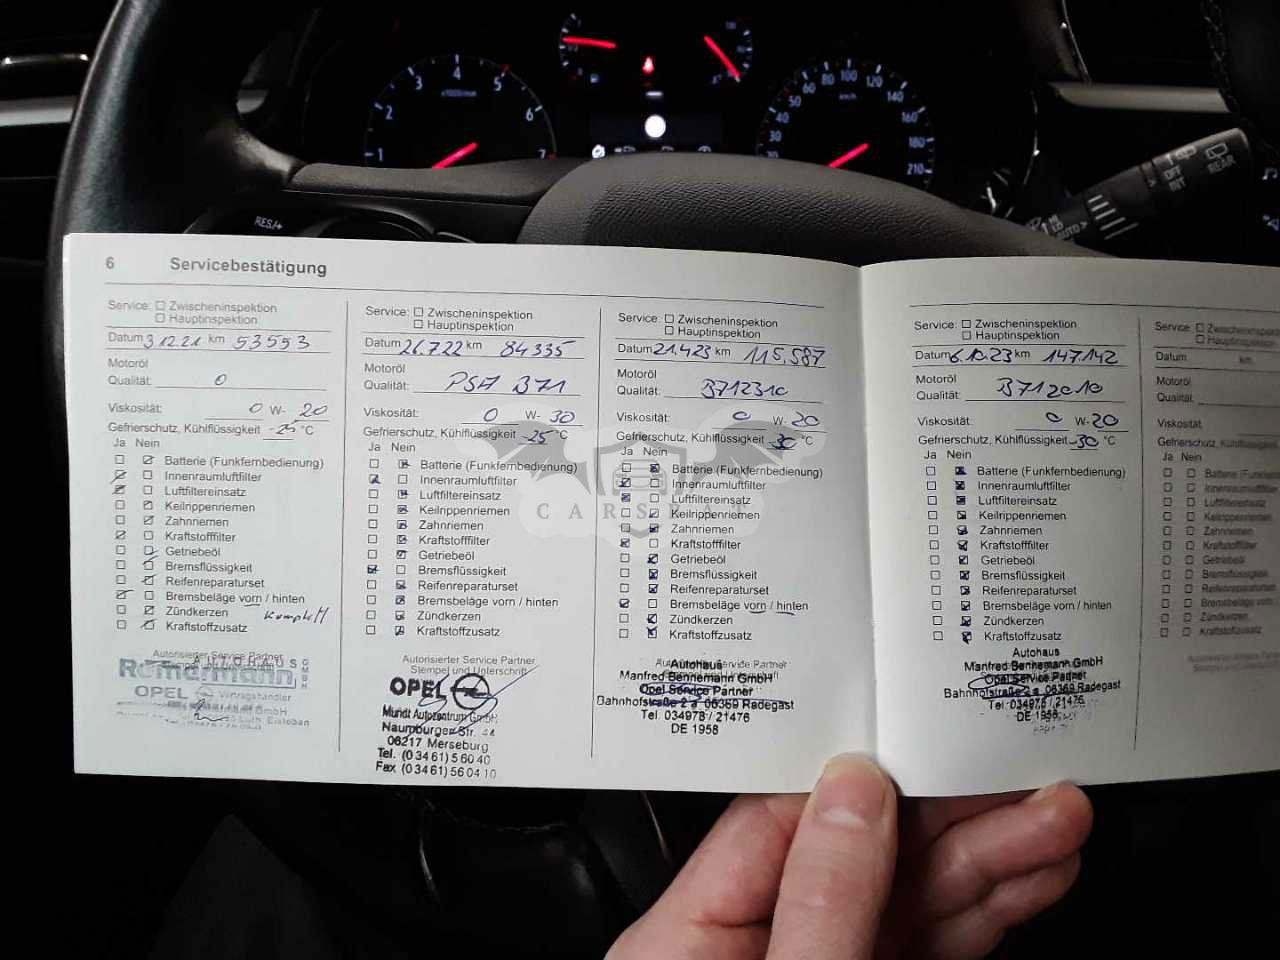 1
2
3
4
5
6
7
x1000/min
30
40
50
60
80
100
120
140
160
180
210
km/h
RES/+
OFF
INT
REAR
HI
LO
AUTO>
6 Servicebestätigung
Service: Zwischeninspektion
Hauptinspektion
Datum 3.12.21 km 53553
Motoröl
Qualität: 0
Viskosität: 0 W- 20
Gefrierschutz, Kühlflüssigkeit -25 °C
Ja Nein
Batterie (Funkfernbedienung)
Innenraumluftfilter
Luftfiltereinsatz
Keilrippenriemen
Zahnriemen
Kraftstofffilter
Getriebeöl
Bremsflüssigkeit
Reifenreparaturset
Bremsbeläge vorn / hinten
Zündkerzen Komplett
Kraftstoffzusatz
Autorisierter Service Partner
AUTOHAUS
Römermann
GMBH
OPEL Vertragshändler
Service: Zwischeninspektion
Hauptinspektion
Datum 26.7.22 km 84335
Motoröl
Qualität: PSA B71
Viskosität: 0 W- 30
Gefrierschutz, Kühlflüssigkeit -25 °C
Ja Nein
Batterie (Funkfernbedienung)
Innenraumluftfilter
Luftfiltereinsatz
Keilrippenriemen
Zahnriemen
Kraftstofffilter
Getriebeöl
Bremsflüssigkeit
Reifenreparaturset
Bremsbeläge vorn / hinten
Zündkerzen
Kraftstoffzusatz
Autorisierter Service Partner
Stempel und Unterschrift
OPEL
Mundt Autozentrum GmbH
Naumburger Str. 44
06217 Merseburg
Tel. (03461) 56040
Fax (03461) 560410
Service: Zwischeninspektion
Hauptinspektion
Datum 21.4.23 km 115.587
Motoröl
Qualität: B712310
Viskosität: 0 W- 20
Gefrierschutz, Kühlflüssigkeit -30 °C
Ja Nein
Batterie (Funkfernbedienung)
Innenraumluftfilter
Luftfiltereinsatz
Keilrippenriemen
Zahnriemen
Kraftstofffilter
Getriebeöl
Bremsflüssigkeit
Reifenreparaturset
Bremsbeläge vorn / hinten
Zündkerzen
Kraftstoffzusatz
Autorisierter Service Partner
Autohaus
Manfred Bennemann GmbH
Opel Service Partner
Bahnhofstraße 2 a 06369 Radegast
Tel. 034978 / 21476
DE 1958
CARSBAT
Service: Zwischeninspektion
Hauptinspektion
Datum 6.10.23 km 147142
Motoröl
Qualität: B712010
Viskosität: 0 W- 20
Gefrierschutz, Kühlflüssigkeit -30 °C
Ja Nein
Batterie (Funkfernbedienung)
Innenraumluftfilter
Luftfiltereinsatz
Keilrippenriemen
Zahnriemen
Kraftstofffilter
Getriebeöl
Bremsflüssigkeit
Reifenreparaturset
Bremsbeläge vorn / hinten
Zündkerzen
Kraftstoffzusatz
Autohaus
Manfred Bennemann GmbH
Opel Service Partner
Bahnhofstraße 2 a 06369 Radegast
Tel. 034978 / 21476
DE 1958
Service: Zwischeninspektion
Hauptinspektion
Datum km
Motoröl
Qualität:
Viskosität:
Gefrierschutz, Kühlflüssigkeit
Ja Nein
Batterie (Funkfernbed
Innenraumluftfilter
Luftfiltereinsatz
Keilrippenriemen
Zahnriemen
Kraftstofffilter
Getriebeöl
Bremsflüssigkeit
Reifenreparaturset
Bremsbeläge vorn / hinten
Zündkerzen
Kraftstoffzusatz